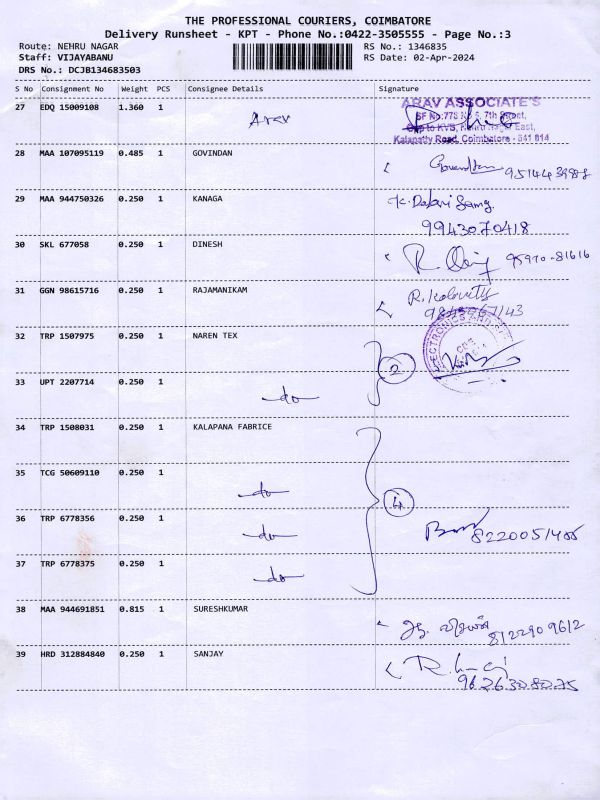 THE PROFESSIONAL COURIERS, COIMBATORE
Delivery Runsheet - KPT - Phone No.:0422-3505555 - Page No.:3
Route: NEHRU NAGAR
Staff: VIJAYABANU
DRS No.: DCJB134683503
RS No.: 1346835
RS Date: 02-Apr-2024
S No Consignment No Weight PCS Consignee Details Signature
27 EDQ 15009108 1.360 1 Arav
ARAV ASSOCIATE'S
SF No:778 7th Street,
Opp to KVS, Nehru Nagar East,
Kalapatty Road, Coimbatore - 641 014
28 MAA 107095119 0.485 1 GOVINDAN
29 MAA 944750326 0.250 1 KANAGA
9943070418
30 SKL 677058 0.250 1 DINESH
95970-81616
31 GGN 98615716 0.250 1 RAJAMANIKAM
32 TRP 1507975 0.250 1 NAREN TEX
2
33 UPT 2207714 0.250 1 do
34 TRP 1508031 0.250 1 KALAPANA FABRICE
35 TCG 50609110 0.250 1 do
4
36 TRP 6778356 0.250 1 do
37 TRP 6778375 0.250 1 do
38 MAA 944691851 0.815 1 SURESHKUMAR
8122909612
39 HRD 312884840 0.250 1 SANJAY
9626308075